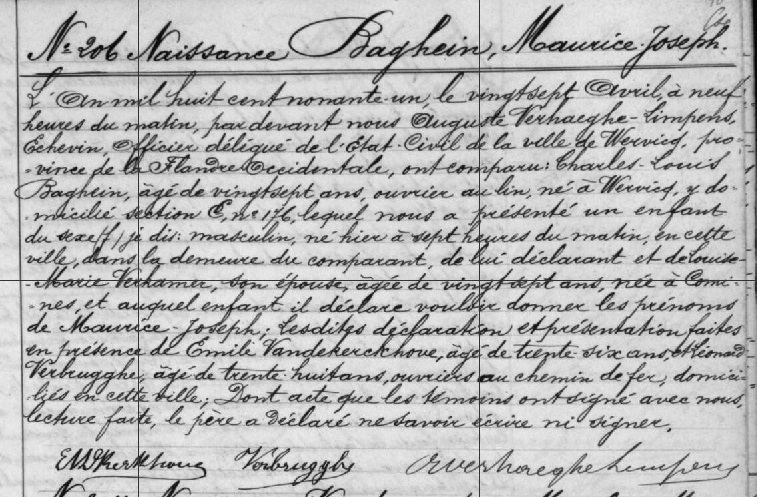 N° 206 Naissance Baghein, Maurice-Joseph.
L'An mil huit cent nonante-un, le vingtsept Avril, à neuf
heures du matin, pardevant nous Auguste Verhaeghe-Limpens,
Echevin, Officier délégué de l'Etat-Civil de la ville de Wervicq, pro-
-vince de la Flandre Occidentale, ont comparu: Charles-Louis
Baghein, âgé de vingtsept ans, ouvrier au lin, né à Wervicq, y do-
-micilié section C, n° 176, lequel nous a présenté un enfant
du sexe je dis: masculin, né hier à sept heures du matin, en cette
ville, dans la demeure du comparant, de lui déclarant et de Louise-
-Marie Verhamer, son épouse, âgée de vingtsept ans, née à Comi-
-nes, et auquel enfant il déclare vouloir donner les prénoms
de Maurice-Joseph; Lesdites déclaration et présentation faites
en présence de Emile Vandekerckhove, âgé de trente six ans, et Léonard
Verbrugghe, âgé de trente huit ans, ouvriers au chemin de fer, domici-
liés en cette ville; Dont acte que les témoins ont signé avec nous,
lecture faite, le père a déclaré ne savoir écrire ni signer.
Verbrugghe AVerhaeghe Limpens